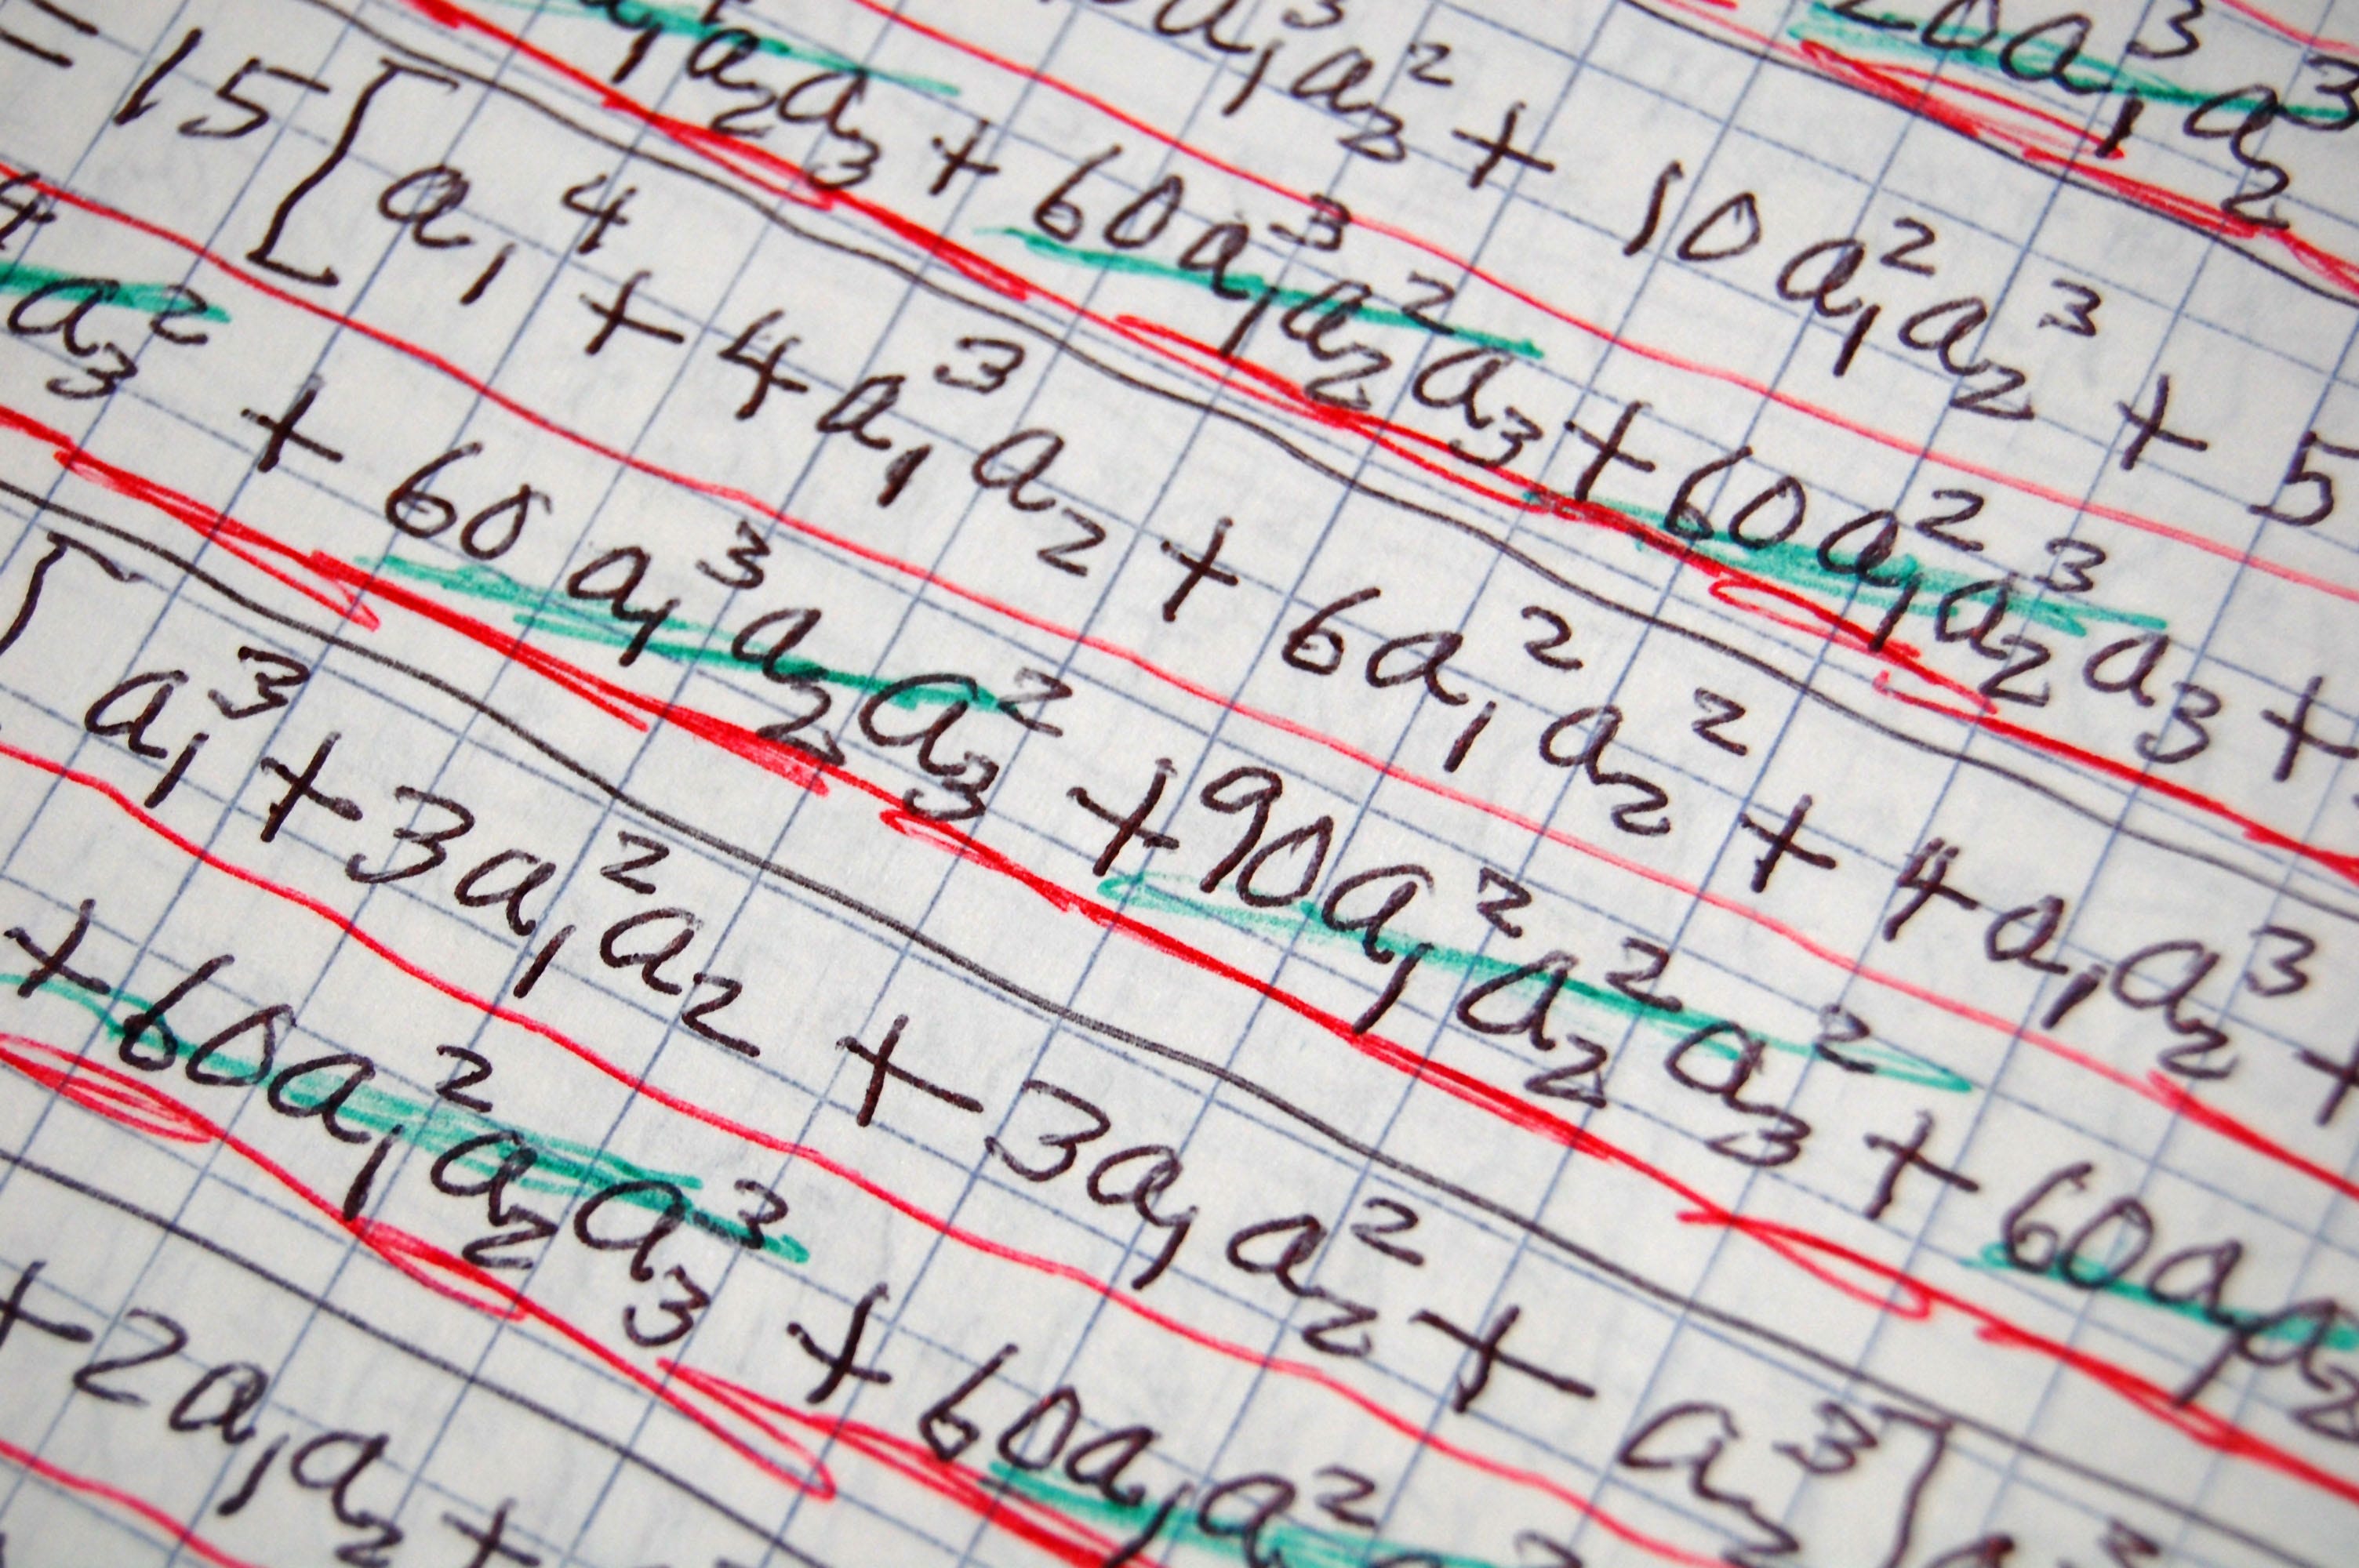 20a₁³a₂³
a₁³a₂² + 10a₁²a₂³ + 5
a₂a₃ + 60a₁³a₂²a₃ + 60a₁²a₂³a₃ +
= 15[a₁⁴ + 4a₁³a₂ + 6a₁²a₂² + 4a₁a₂³ +
⁴a₃² + 60a₁³a₂a₃² + 90a₁²a₂²a₃² + 60a₁a₂
[a₁³ + 3a₁²a₂ + 3a₁a₂² + a₂³]
+ 60a₁²a₂a₃³ + 60a₁a₂²
+ 2a₁a₂ +